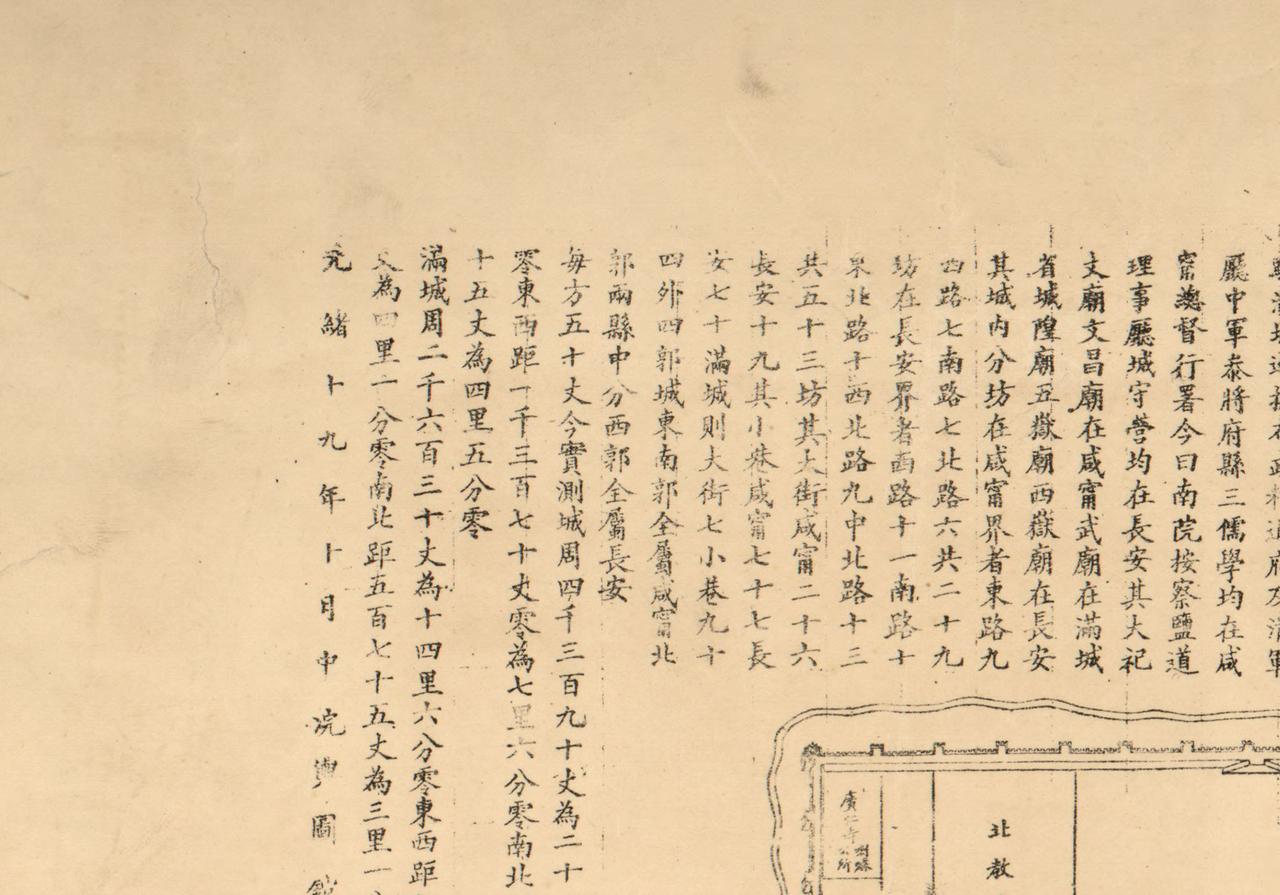 廳中軍泰將府縣三儒學均在咸
甯總督行署今曰南院按察鹽道
理事廳城守營均在長安其大祀
文廟文昌廟在咸甯武廟在滿城
省城隍廟五嶽廟西嶽廟在長安
其城內分坊在咸甯界者東路九
西路七南路七北路六共二十九
坊在長安界者西路十一南路十
東北路十西北路九中北路十三
共五十三坊其大街咸甯二十六
長安十九其小巷咸甯七十七長
安七十滿城則大街七小巷九十
四外四郭城東南郭全屬咸甯北
郭兩縣中分西郭全屬長安
每方五十丈今實測城周四千三百九十丈為二十
零東西距一千三百七十丈零為七里六分零南北
十五丈為四里五分零
滿城周二千六百三十丈為十四里六分零東西距
丈為四里一分零南北距五百七十五丈為三里一
光緒十九年十月中浣輿圖館
廣仁寺
北教